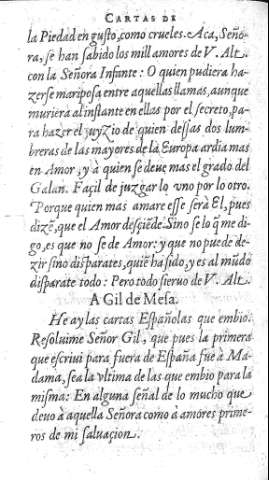 CARTAS DE
la Piedad en gusto, como crueles. Aca, Seño-
ra, se han sabido los mill amores de V. Alt.
con la Señora Infante: O quien pudiera ha-
zerse mariposa entre aquellas llamas, aunque
muriera al instante en ellas por el secreto, pa-
ra hazer el juyzio de quien dessas dos lum-
breras de las mayores de la Europa ardia mas
en Amor, y à quien se deue mas el grado del
Galan. Façil de juzgar lo vno por lo otro.
Porque quien mas amare esse serà El, pues
dizẽ, que el Amor desciẽde. Sino se lo q̃ me di-
go, es que no se de Amor: y que no puede de-
zir sino disparates, quiẽ ha sido, y es al mũdo
disparate todo: Pero todo sieruo de V. Alt.
A Gil de Mesa.
He ay las cartas Españolas que embio.
Resoluime Señor Gil, que pues la primera
que escriui para fuera de España fue à Ma-
dama, sea la vltima de las que embio para la
misma: En alguna señal de lo mucho que
deuo à aquella Señora como à amores prime-
ros de mi saluaçion.